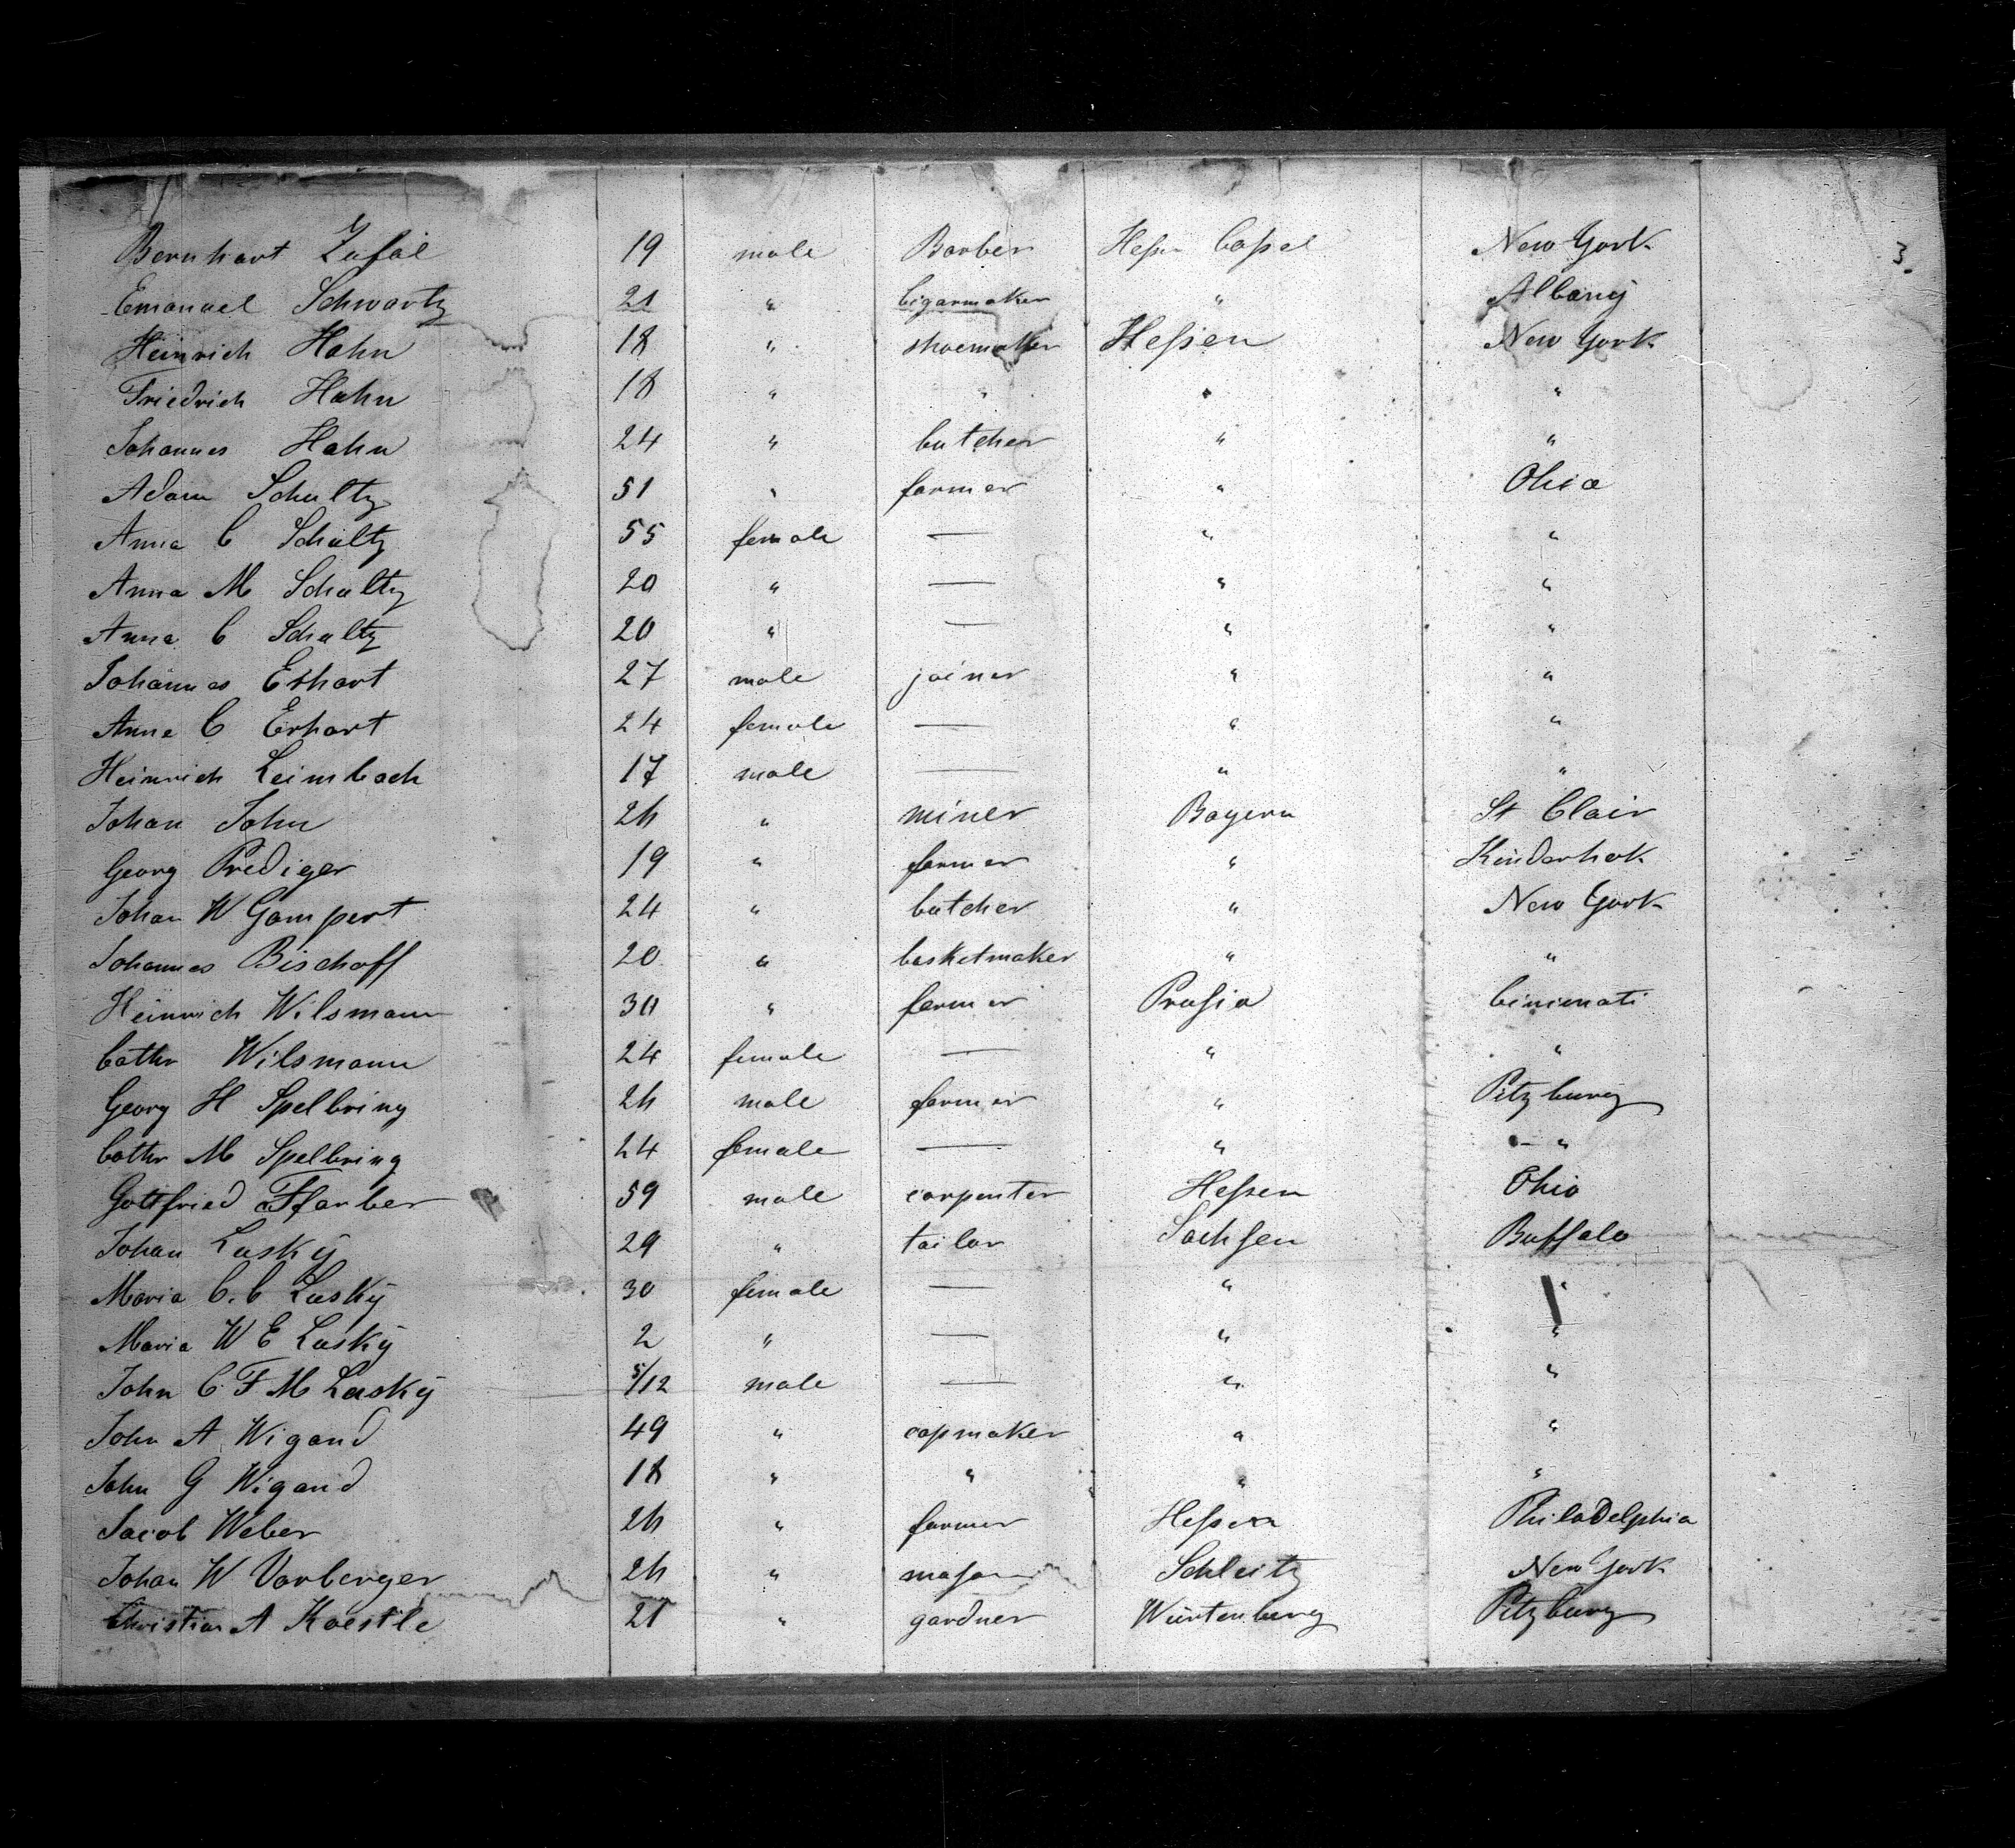 3.
Bernhart Zufal 19 male Barber Hessen Cassel New York
Emanuel Schwartz 21 " Cigarmaker " Albany
Heinrich Hahn 18 " shoemaker Hessen New York
Friedrich Hahn 18 " " " "
Johannes Hahn 24 " butcher " "
Adam Schultz 51 " farmer " Ohio
Anna C Schultz 55 female — " "
Anna M Schultz 20 " — " "
Anna C Schultz 20 " — " "
Johannes Erhart 27 male joiner " "
Anna C Erhart 24 female — " "
Heinrich Leimbach 17 male — " "
Johan John 26 " miner Bayern St Clair
Georg Prediger 19 " farmer " Kinderhok
Johan W Gampert 24 " butcher " New York
Johannes Bischoff 20 " basketmaker " "
Heinrich Wilsmann 30 " farmer Prussia Cincinati
Cathr Wilsmann 24 female — " "
Georg H Spelbring 26 male farmer " Pitzburg
Cathr M Spelbring 24 female — " "
Gottfried Farber 59 male carpenter Hessen Ohio
Johan Lusky 29 " tailor Sachsen Buffalo
Maria C. C Lusky 30 female — " "
Maria W E Lusky 2 " — " "
John C. F M Lusky 5/12 male — " "
John A Wigand 49 " capmaker " "
John G Wigand 18 " " " "
Jacob Weber 26 " farmer Hessen Philadelphia
Johan W Vorberger 26 " mason Schleitz New York
Christian A Kaestle 21 " gardner Würtenberg Pitzburg